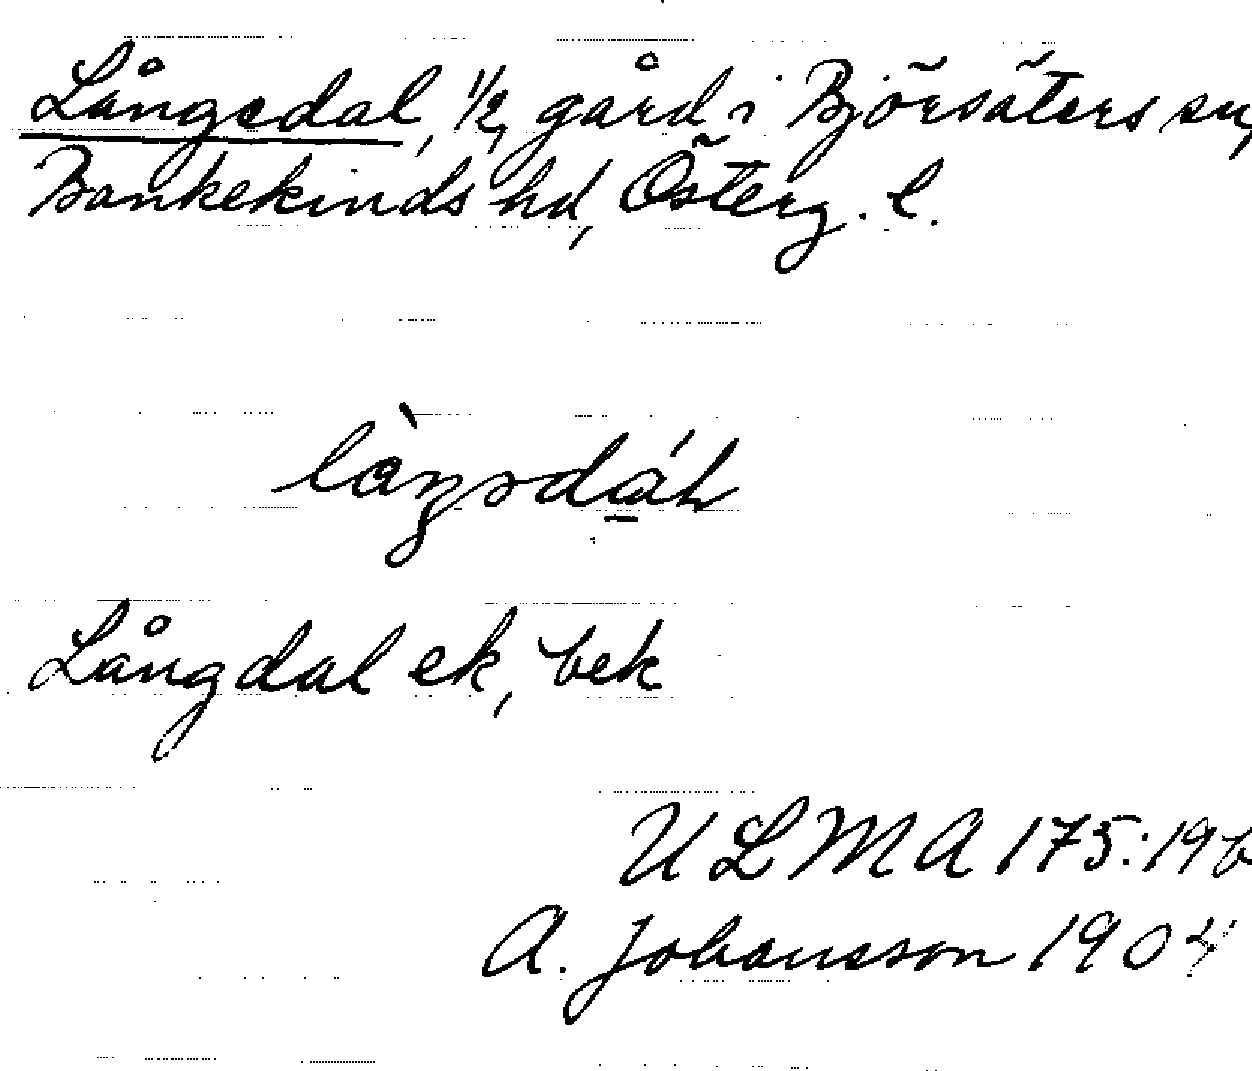 Långsdal, 1/2, gård i Björsäters sn,
Bankekinds hd, Österg. l.
Långdal ek, bek
ULMA 175:19b
A. Johansson 1904